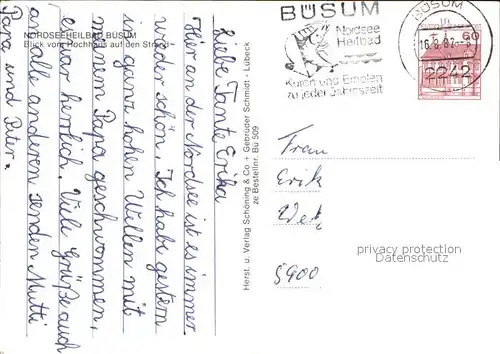 NORDSEEHEILBAD BÜSUM
Blick vom Hochhaus auf den Strand
Liebe Tante Erika
Hier an der Nordsee ist es immer
wieder schön. Ich habe gestern
in ganz hohen Wellen mit
meinem Papa geschwommen,
das war herrlich. Viele Grüße auch
an alle anderen senden Mutti
Papa und Peter.
Herst. u. Verlag Schöning & Co + Gebrüder Schmidt - Lübeck
ze Bestellnr. Bü 509
BÜSUM
Nordsee
Heilbad
Kuren und Erholen
zu jeder Jahreszeit
BÜSUM
2242
60
Frau
Erik
5900
privacy protection
Datenschutz